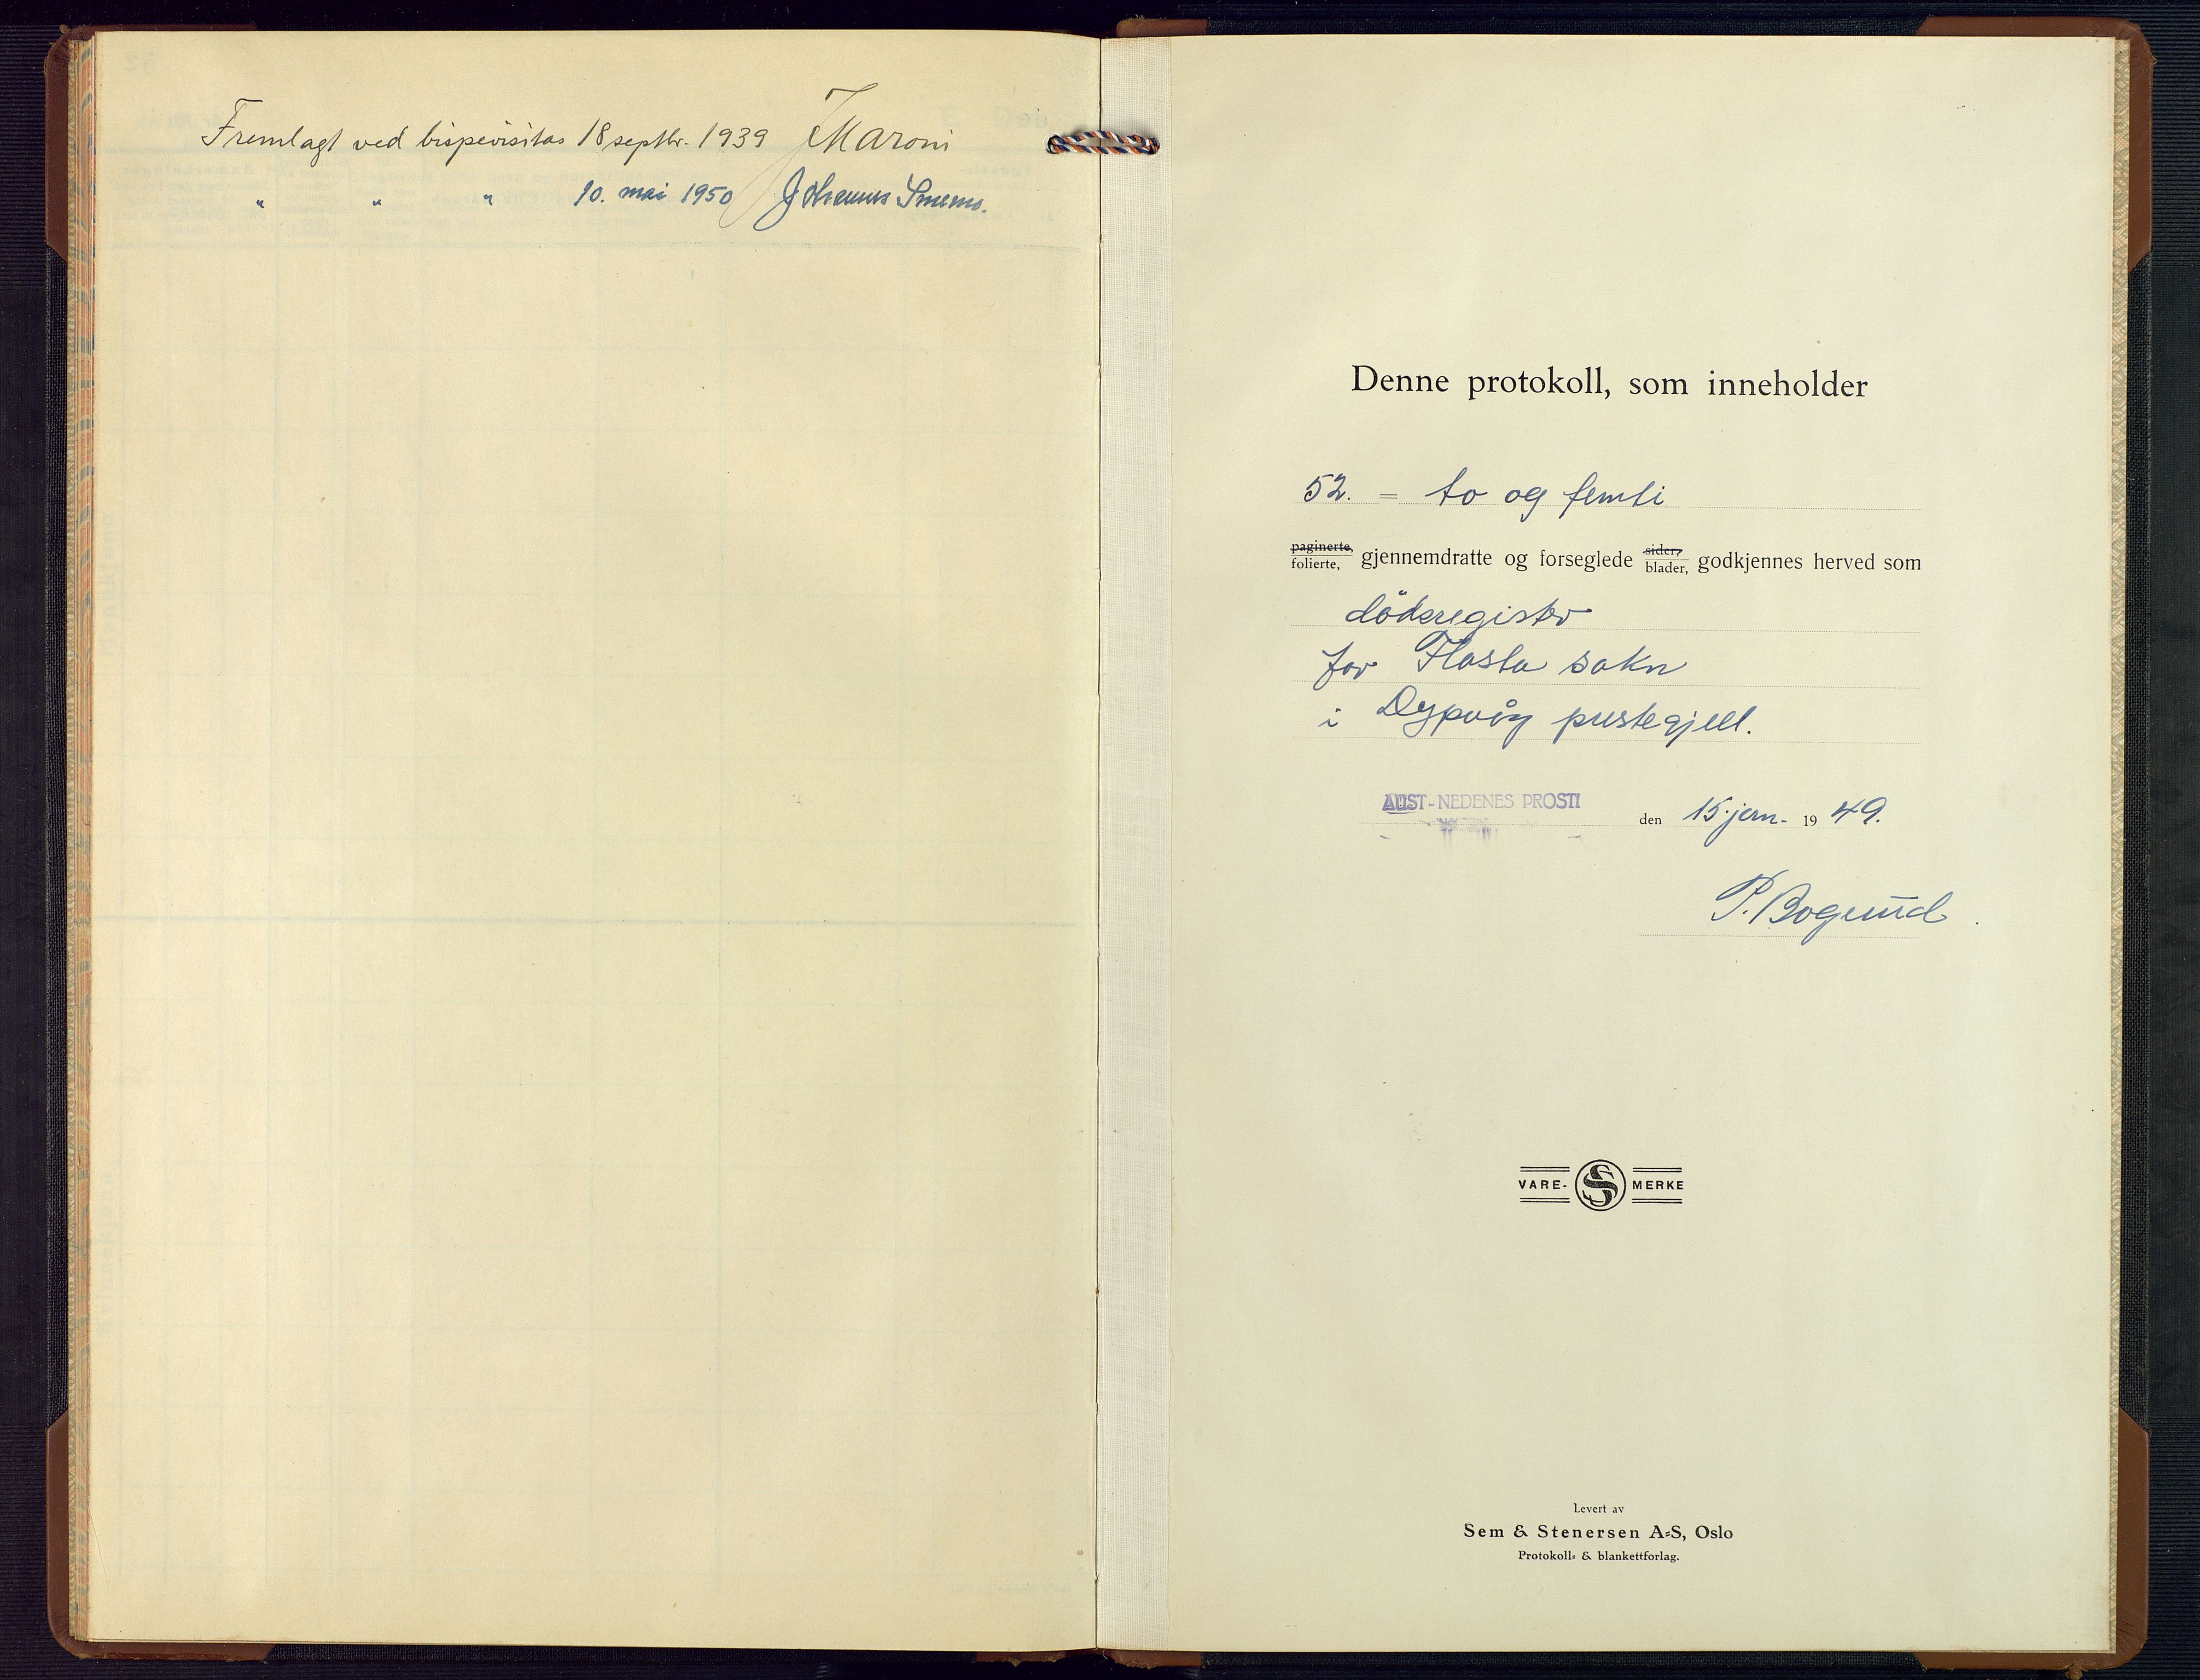 Fremlagt ved bispevisitas 18 septbr. 1939 JMaroni
" " " 10. mai 1950 Johannes Smemo.
Denne protokoll, som inneholder
52. = to og femti
paginerte, folierte, gjennemdratte og forseglede sider, blader, godkjennes herved som
dödsregister
for Flosta sokn
i Dypvåg prestegjell.
AUST-NEDENES PROSTI den 15. jan. 1949.
P. Bogsund
VARE- S MERKE
Levert av
Sem & Stenersen A-S, Oslo
Protokoll- & blankettforlag.